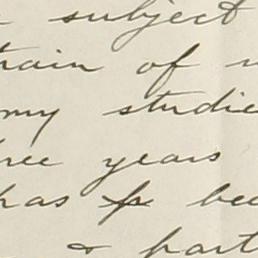 subject
train of
my studie
ree years
has be
& part